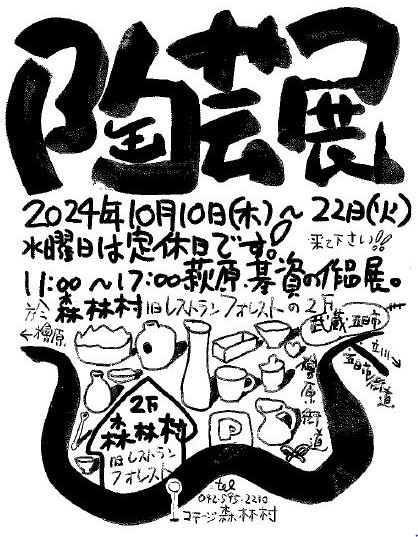 陶芸展
2024年10月10日(木)～22日(火)
水曜日は定休日です。
来て下さい!!
11:00～17:00萩原基資の作品展。
於 森林村 旧レストランフォレストの2万
←檜原
武蔵五日市
立川→
五日市街道
檜原街道
2万
森林村
旧レストラン
フォレスト
P
tel
042-595-2210
コテージ森林村